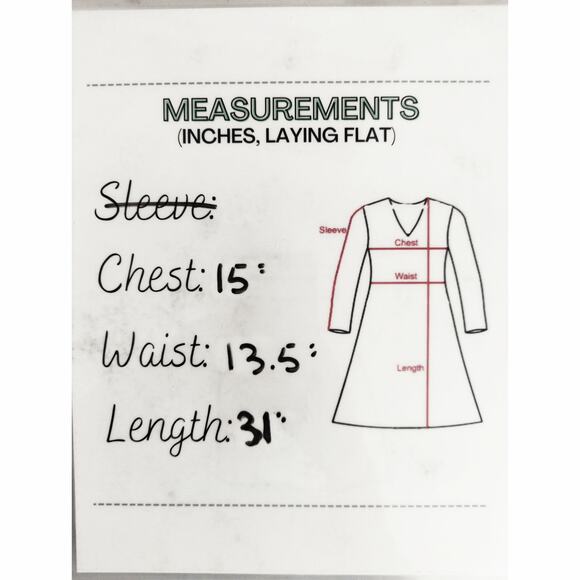 MEASUREMENTS
(INCHES, LAYING FLAT)
Sleeve:
Chest: 15"
Waist: 13.5"
Length: 31"
Sleeve
Chest
Waist
Length